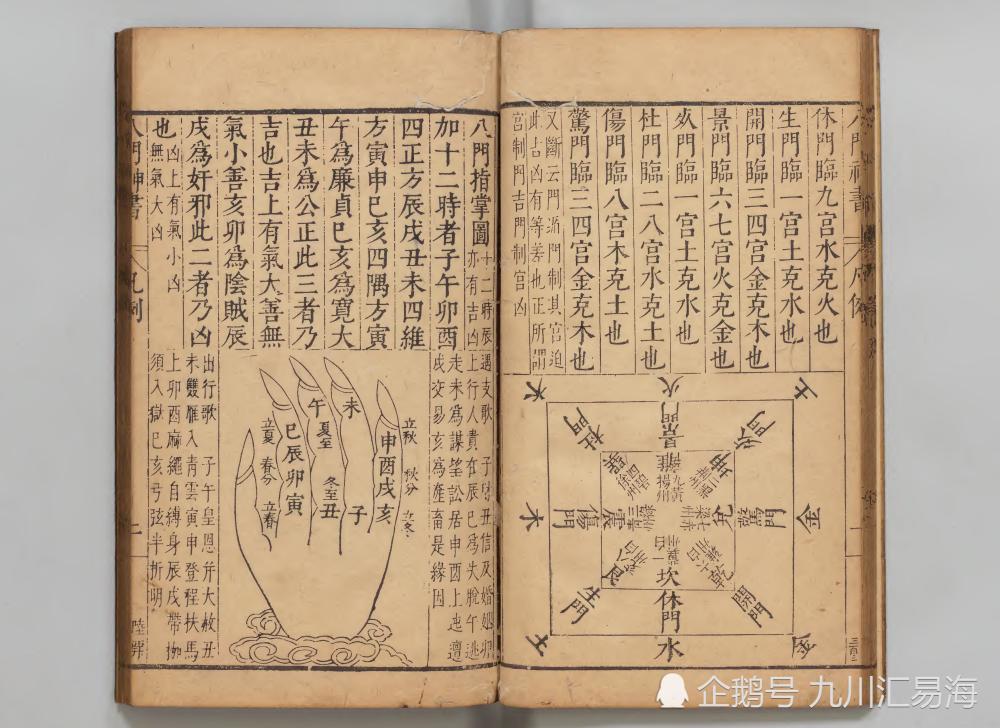 八門神書
凡例
休門臨九宮水克火也
生門臨一宮土克水也
開門臨三四宮金克木也
景門臨六七宮火克金也
死門臨一宮土克水也
杜門臨二八宮木克土也
傷門臨八宮木克土也
驚門臨三四宮金克木也
又斷云門
門制其宮迫
此占凶有等差也正所謂
宮制門吉門制宮凶
火
景門
離
九
揚州
土
死門
坤
金
驚門
兌
七
梁州
金
開門
乾
水
休門
坎
一白
土
生門
艮
八白
木
傷門
震
三
青州
木
杜門
巽
四
徐州
八門指掌圖
十二時辰
亦有吉凶
加十二時者子午卯酉
四正方辰戌丑未四維
方寅申巳亥四隅方寅
午為廉貞巳亥為寬大
丑未為公正此三者乃
吉也吉上有氣大善無
氣小善亥卯為陰賊辰
戌為奸邪此二者乃凶
也
凶上有氣小凶
無氣大凶
遇支歌
子
丑信及婚姻卯
上行人貴在辰巳為失脫午逃
走未為謀望訟居申酉上迍邅
戌交易亥為產畜是緣因
立秋
秋分
立冬
申酉戌亥
未
子
午
夏至
冬至
丑
巳辰卯寅
立夏
春分
立春
出行歌
子午皇恩并大赦丑
未雙雁入青雲寅申登程扶馬
上卯酉麻繩自縛身辰戌帶枷
須入獄巳亥弓弦半折明
八門神書
凡例
上
企鹅号 九川汇易海